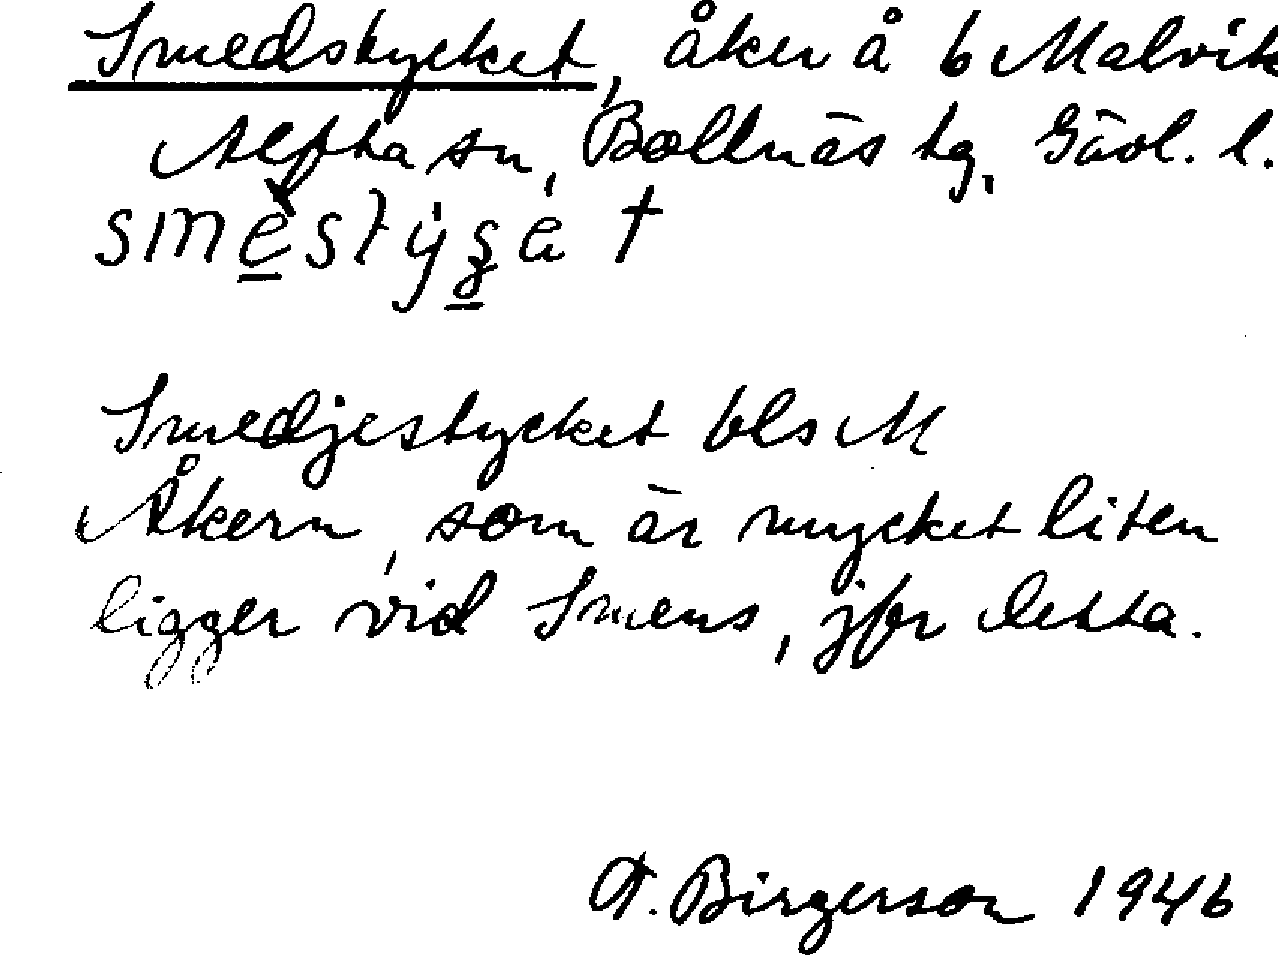 Smedstycket, åker å b Malvik
Alfta sn, Bollnäs tg, Gävl. l.
Smedjestycket bls M
Åkern, som är mycket liten
ligger vid Smens, jfr detta.
A. Birgerson 1946